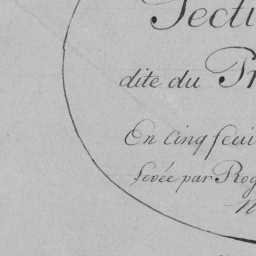 Secti
dite du Pr
En Cinq feui
levée par Rog